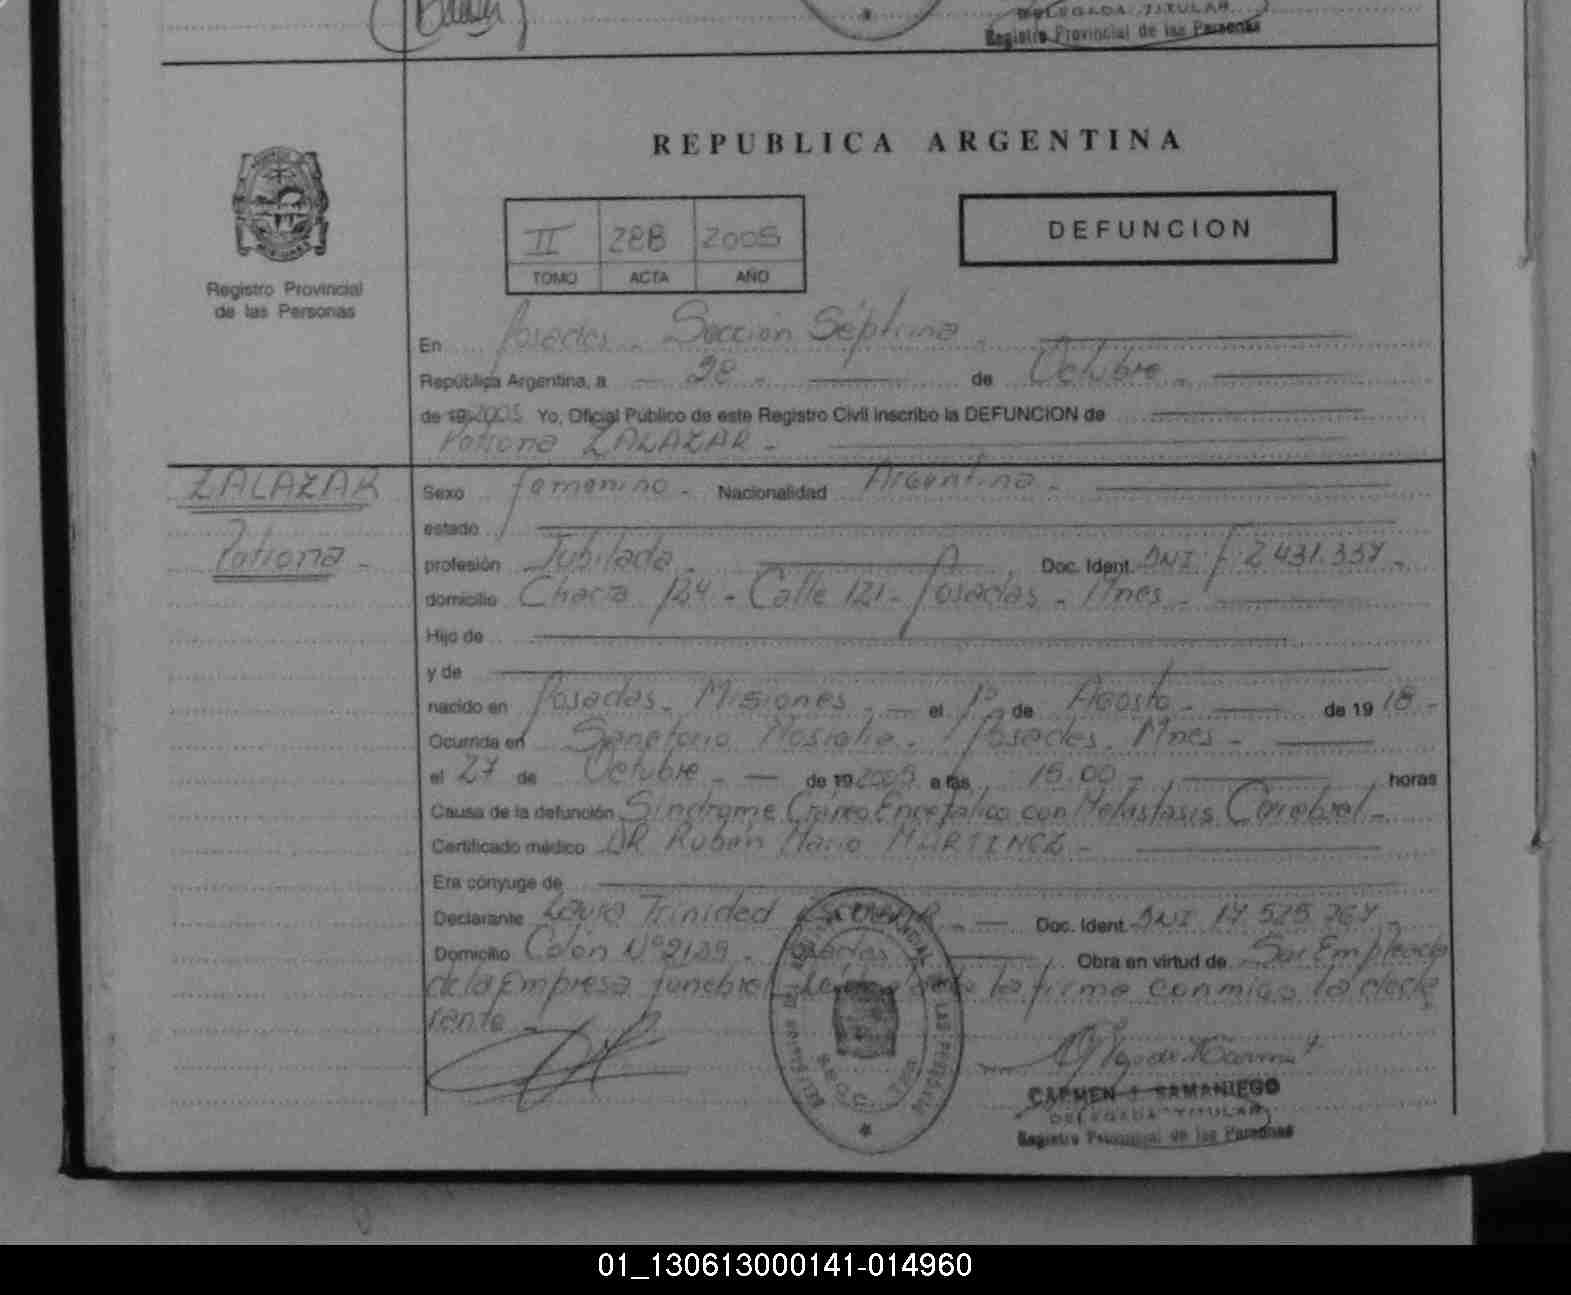 DELEGADA TITULAR
Registro Provincial de las Personas
REPUBLICA ARGENTINA
II 288 2005
TOMO ACTA AÑO
DEFUNCION
Registro Provincial
de las Personas
En Posadas - Sección Séptima -
República Argentina, a - 28 - de Octubre -
de 19 2005 Yo, Oficial Público de este Registro Civil inscribo la DEFUNCION de
ZALAZAR -
ZALAZAR
Sexo femenino - Nacionalidad Argentina -
estado
profesión Jubilada - Doc. Ident. DNI F 2.431.337 -
domicilio Chacra 124 - Calle 121 - Posadas - Mnes -
Hijo de
y de
nacido en Posadas - Misiones - el 1º de Agosto - de 19 18 -
Ocurrida en Sanatorio - Posadas - Mnes -
el 27 de Octubre - de 19 2005 a las 15.00 - horas
Causa de la defunción Sindrome Craneo Encefalico con Metastasis Cerebral -
Certificado médico DR Rubén Mario MARTINEZ -
Era cónyuge de
Declarante Laura Trinidad - Doc. Ident. DNI 17.525.767 -
Domicilio Colon Nº 2139 - Posadas Obra en virtud de Ser Empleada
de la Empresa funebre - Leída el acta la firma conmigo la decla
rante
CARMEN SAMANIEGO
DELEGADA TITULAR
Registro Provincial de las Personas
01_130613000141-014960